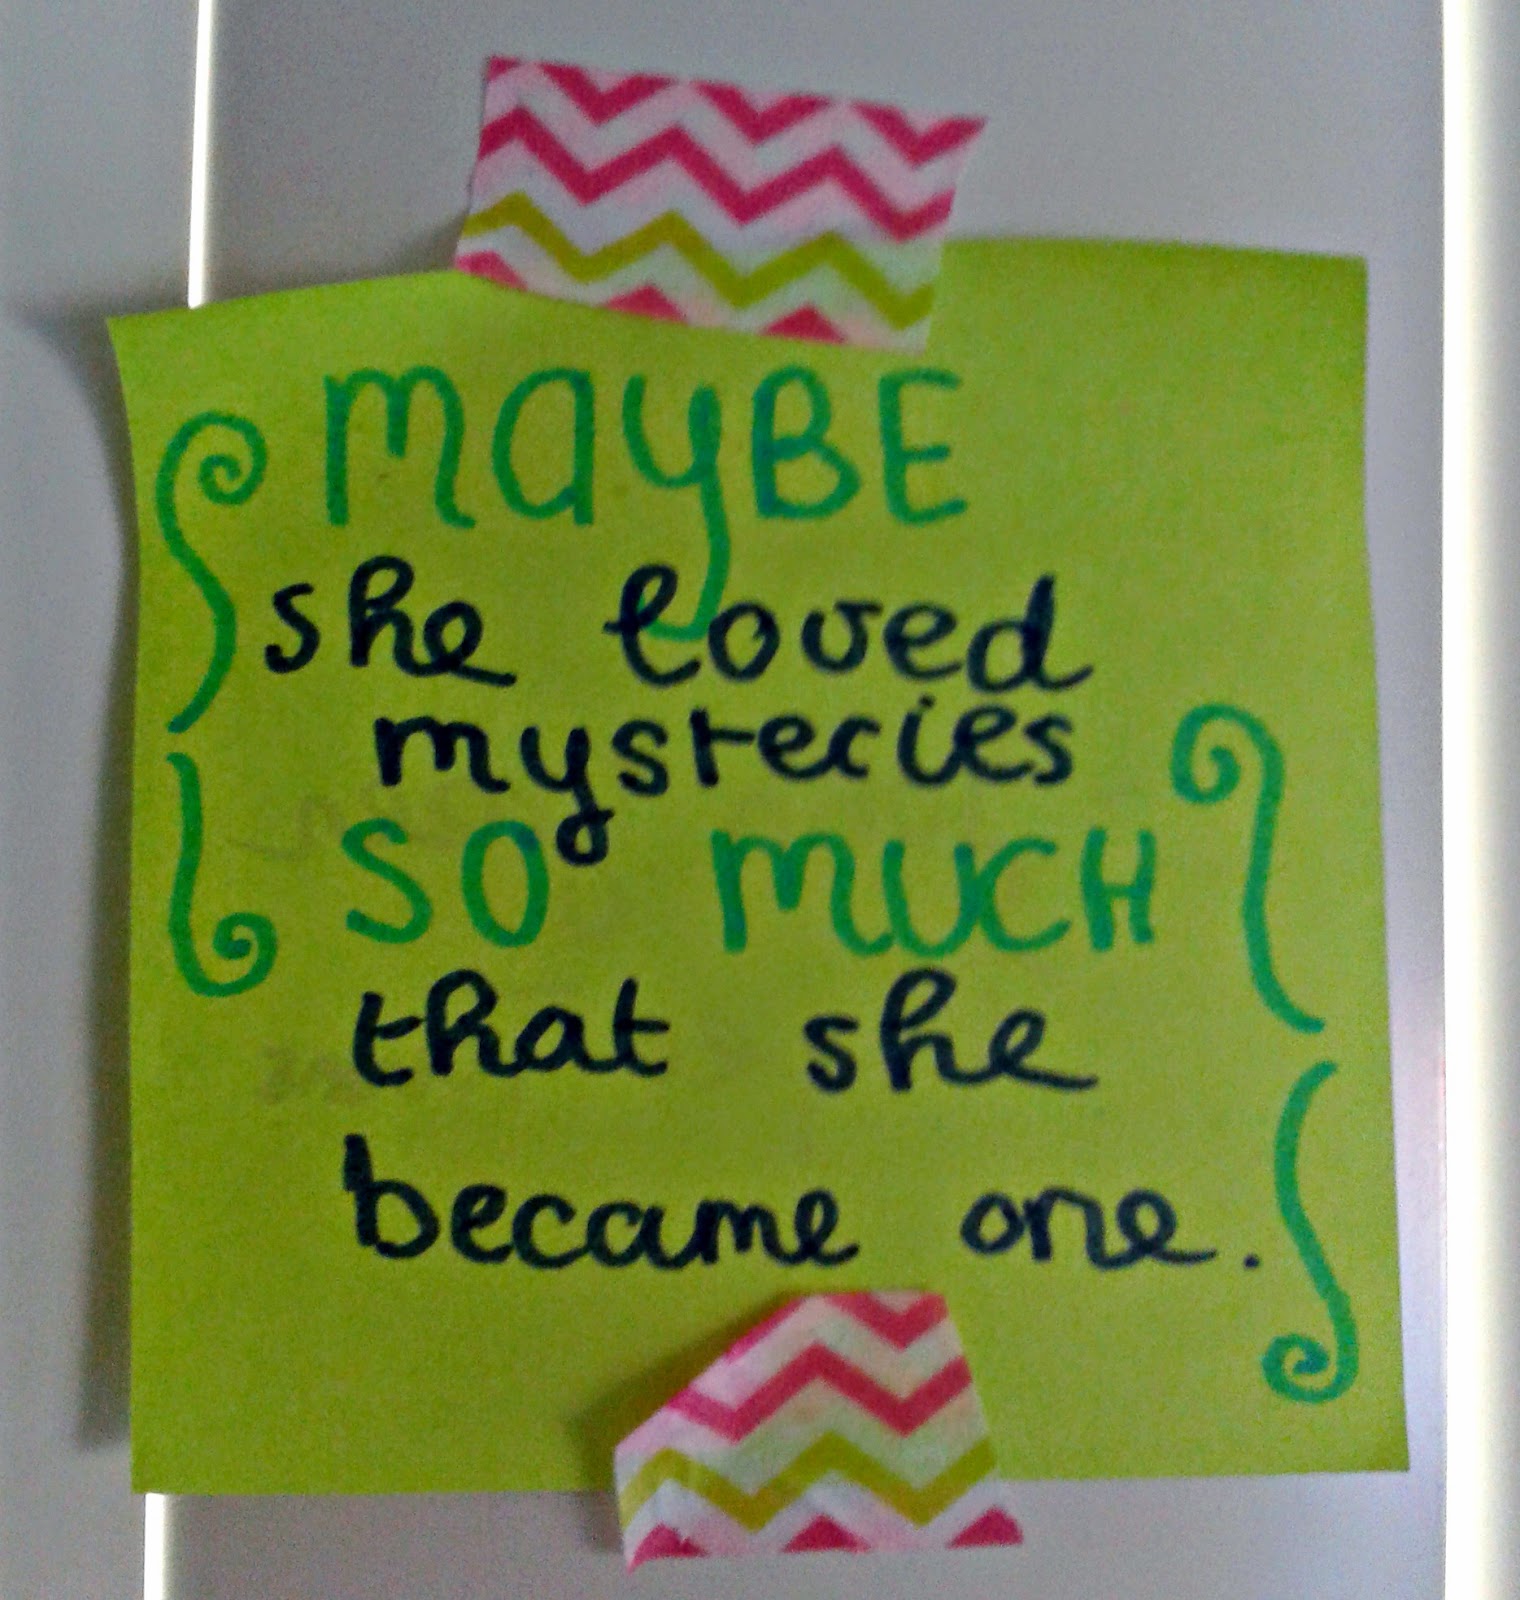 MAYBE
she loved
mysteries
SO MUCH
that she
became one.